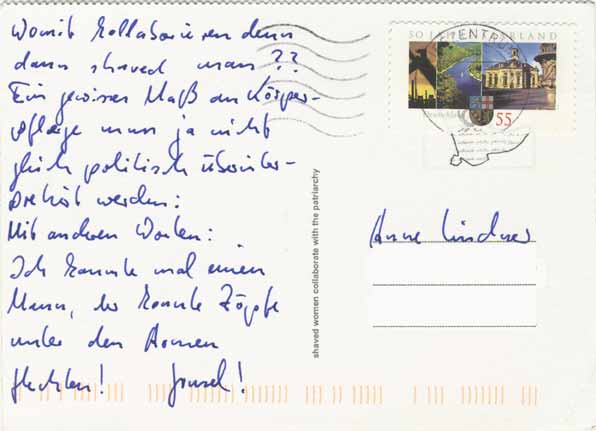 Womit kollaborieren denn
dann shaved man??
Ein gewisses Maß an Körper-
pflege muss ja nicht
gleich politisch überinter-
pretiert werden:
Mit anderen Worten:
Ich kannte mal einen
Mann, der konnte Zöpfe
unter den Armen
flechten!
shaved women collaborate with the patriarchy
Anne Lindner
55